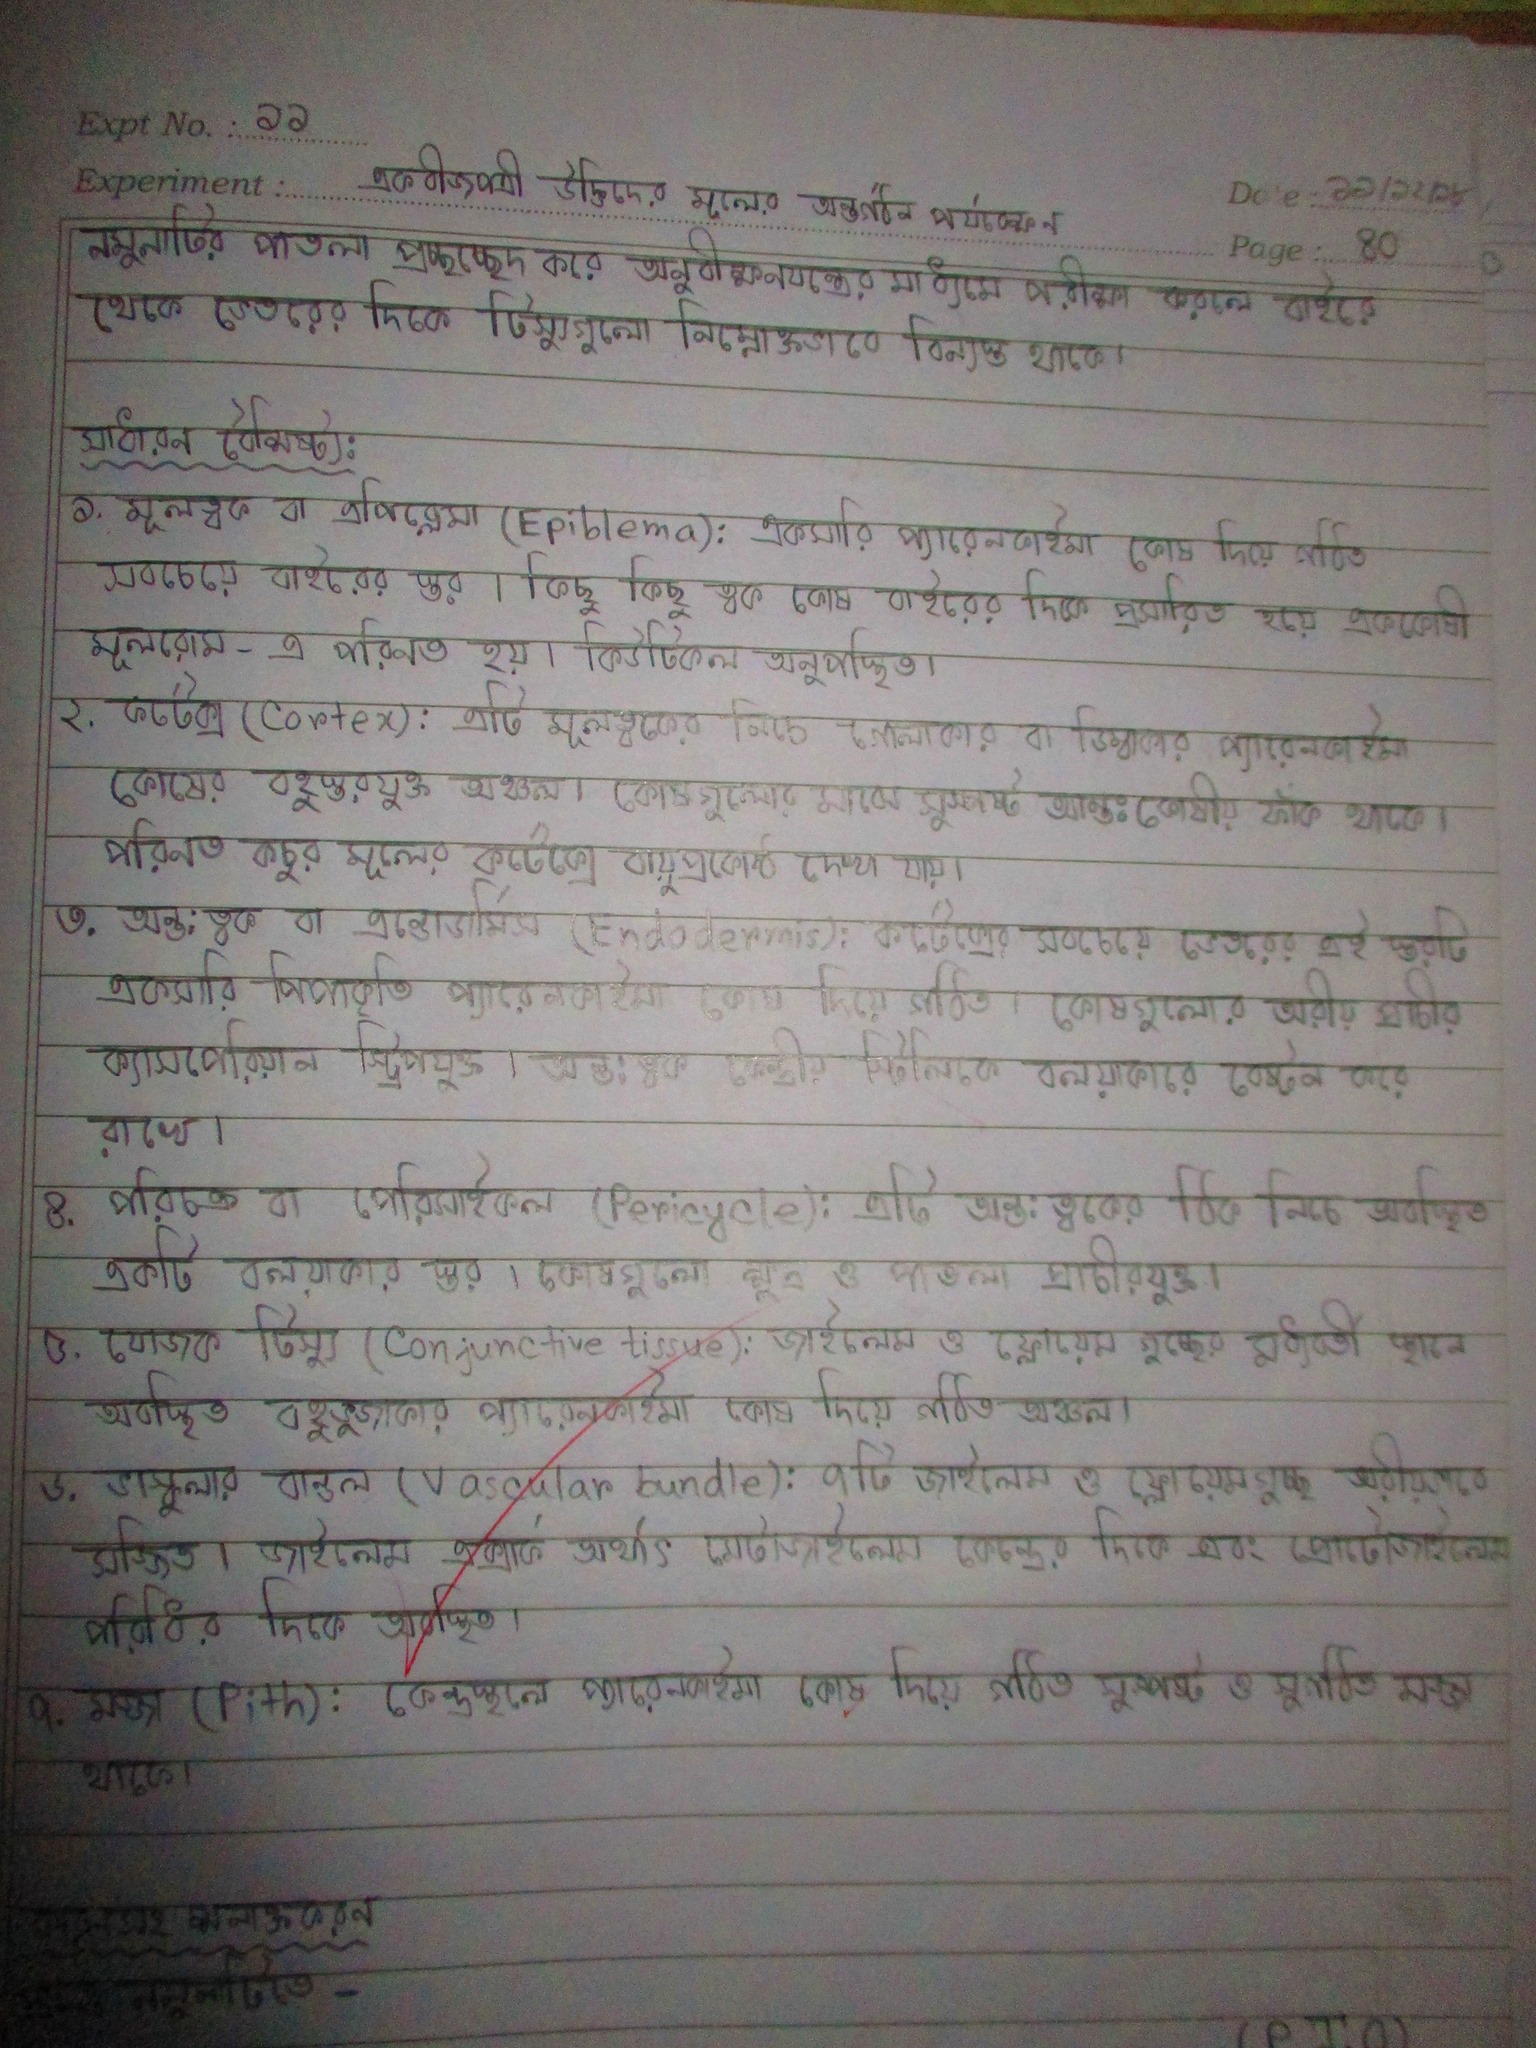 Expt No. : ১১
Experiment : একবীজপত্রী উদ্ভিদের মূলের অন্তর্গঠন পর্যবেক্ষন
Date : ১১/১২/
Page : 80
নমুনাটির পাতলা প্রচ্ছচ্ছেদ করে অনুবীক্ষনযন্ত্রের মাধ্যমে পরীক্ষা করলে বাইরে
থেকে ভেতরের দিকে টিস্যুগুলো নিম্নোক্তভাবে বিন্যস্ত থাকে।
সাধারন বৈশিষ্ট্য:
১. মূলত্বক বা এপিব্লেমা (Epiblema): একসারি প্যারেনকাইমা কোষ দিয়ে গঠিত
সবচেয়ে বাইরের স্তর। কিছু কিছু ত্বক কোষ বাইরের দিকে প্রসারিত হয়ে এককোষী
মূলরোম - এ পরিনত হয়। কিউটিকল অনুপস্থিত।
২. কর্টেক্স (Cortex): এটি মূলত্বকের নিচে গোলাকার বা ডিম্বাকার প্যারেনকাইমা
কোষের বহুস্তরযুক্ত অঞ্চল। কোষগুলোর মাঝে সুস্পষ্ট আন্তঃকোষীয় ফাঁক থাকে।
পরিনত কচুর মূলের কর্টেক্সে বায়ুপ্রকোষ্ঠ দেখা যায়।
৩. অন্তঃত্বক বা এন্ডোডার্মিস (Endodermis): কর্টেক্সের সবচেয়ে ভেতরের এই স্তরটি
একসারি পিপাকৃতি প্যারেনকাইমা কোষ দিয়ে গঠিত। কোষগুলোর অরীয় প্রাচীর
ক্যাসপেরিয়ান স্ট্রিপযুক্ত। অন্তঃত্বক কেন্দ্রীয় স্টিলিকে বলয়াকারে বেষ্টন করে
রাখে।
৪. পরিচক্র বা পেরিসাইকল (Pericycle): এটি অন্তঃত্বকের ঠিক নিচে অবস্থিত
একটি বলয়াকার স্তর। কোষগুলো ক্ষুদ্র ও পাতলা প্রাচীরযুক্ত।
৫. যোজক টিস্যু (Conjunctive tissue): জাইলেম ও ফ্লোয়েম গুচ্ছের মধ্যবর্তী স্থানে
অবস্থিত বহুভুজাকার প্যারেনকাইমা কোষ দিয়ে গঠিত অঞ্চল।
৬. ভাস্কুলার বান্ডল (Vascular bundle): এটি জাইলেম ও ফ্লোয়েমগুচ্ছ অরীয়ভাবে
সজ্জিত। জাইলেম এক্সার্ক অর্থাৎ মেটাজাইলেম কেন্দ্রের দিকে এবং প্রোটোজাইলেম
পরিধির দিকে অবস্থিত।
৭. মজ্জা (Pith): কেন্দ্রস্থলে প্যারেনকাইমা কোষ দিয়ে গঠিত সুস্পষ্ট ও সুগঠিত মজ্জা
থাকে।
শনাক্তকরন
নমুনাটিতে -
(P.T.O)